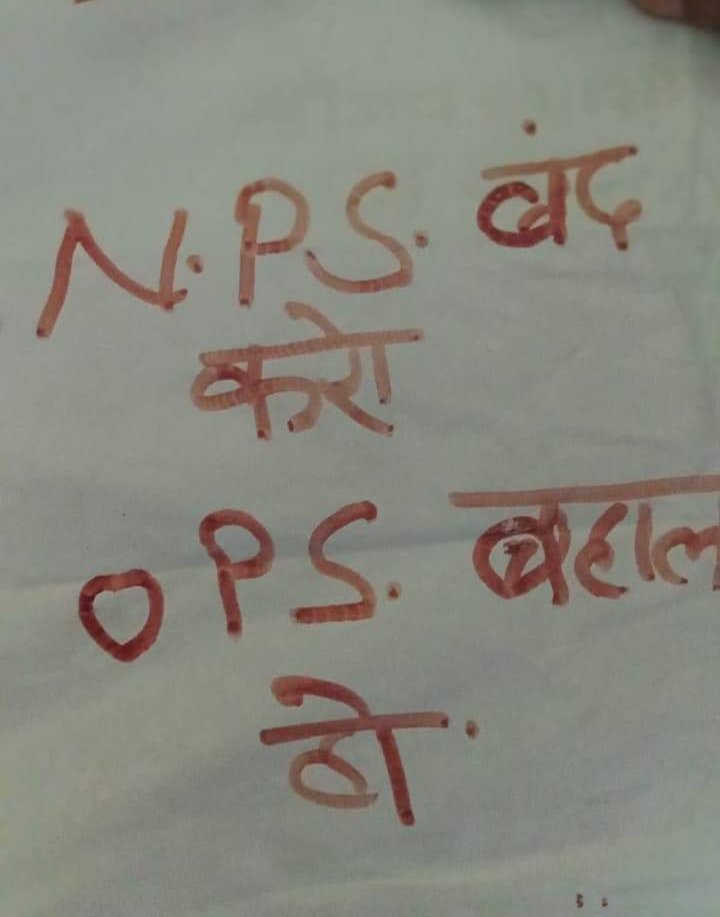 N.P.S. बंद
करो
OPS. बहाल
हो.